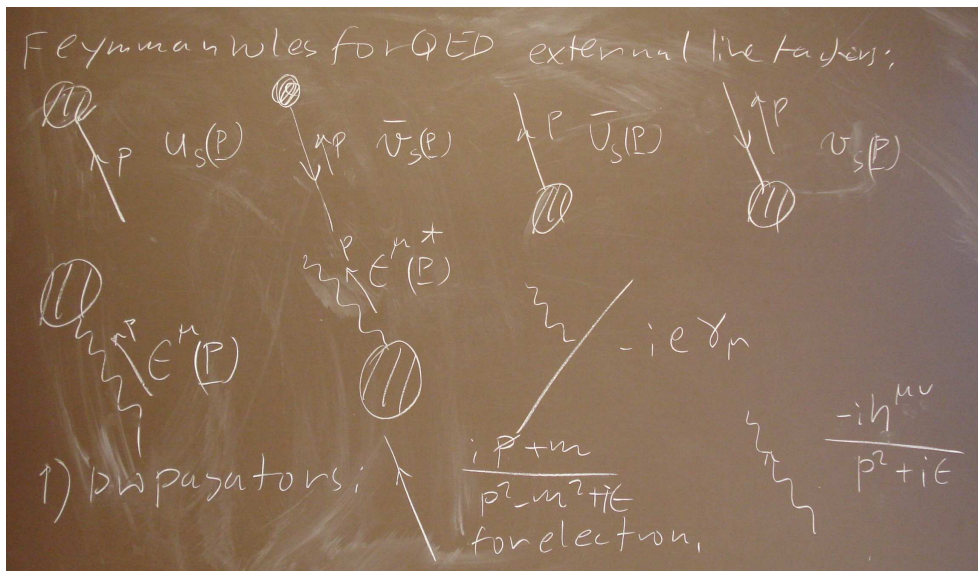 Feynman rules for QED external line factors:
p u_s(p) p v̄_s(p) p ū_s(p) p v_s(p)
p ϵ^μ(p) p ϵ^μ*(p) -ieγ_μ
1) propagators: i p̸+m / p²-m²+iϵ for electron, -iη^μν / p²+iϵ